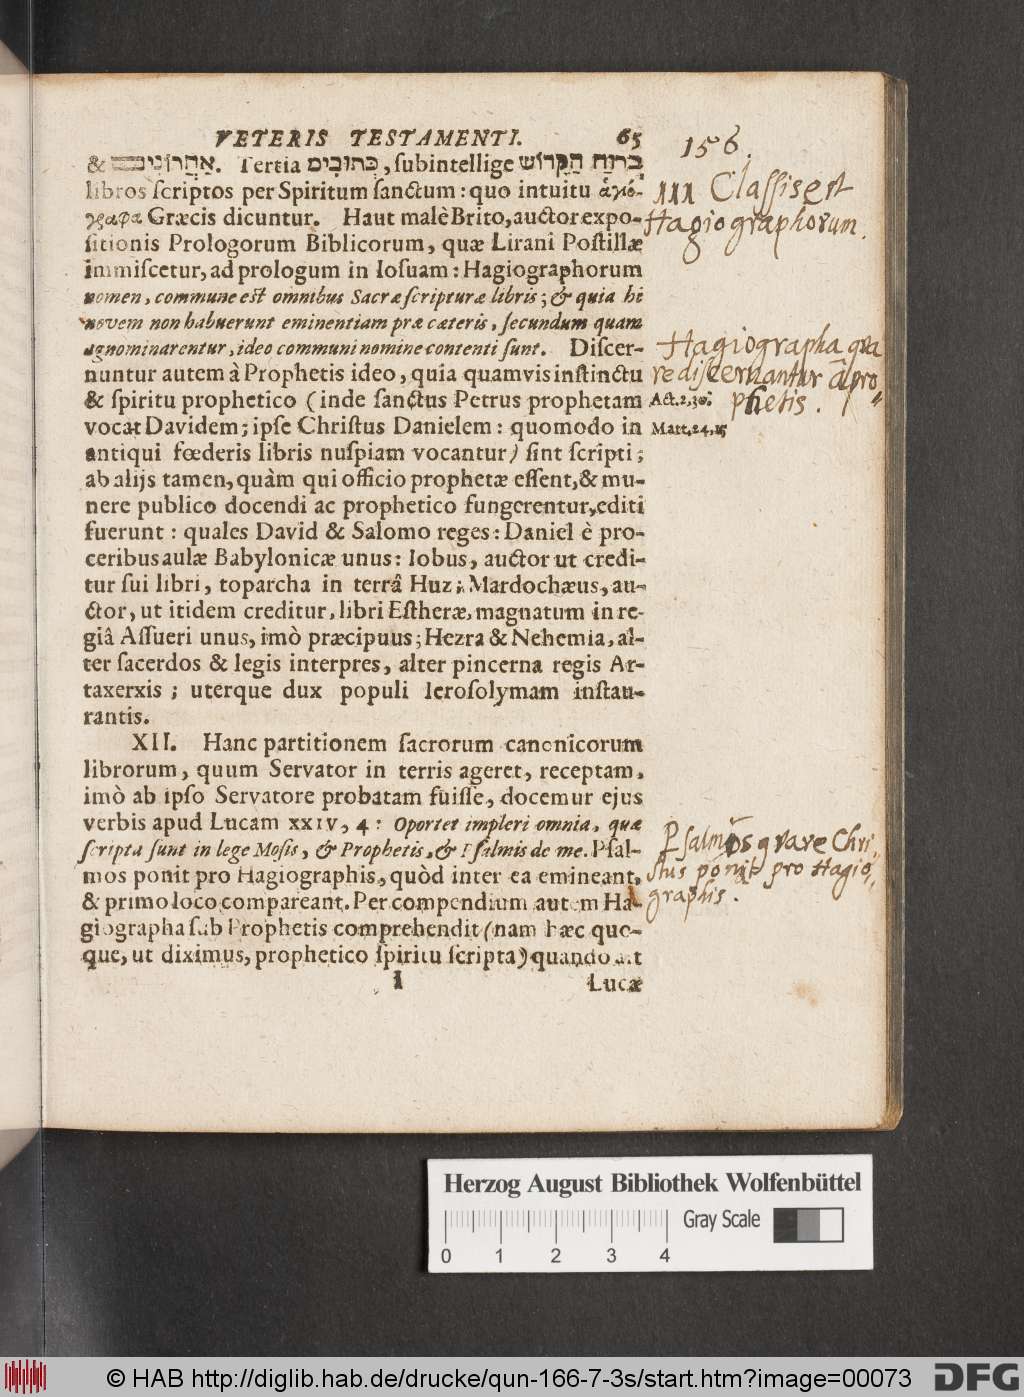 VETERIS TESTAMENTI. 65
& אַחֲרוֹנִים. Tertia כְּתוּבִים, subintellige בְּרוּחַ הַקָּדוֹשׁ
libros scriptos per Spiritum sanctum: quo intuitu ἁγιό-
γραφα Græcis dicuntur. Haut malè Brito, auctor expo-
sitionis Prologorum Biblicorum, quæ Lirani Postillæ
immiscetur, ad prologum in Iosuam: Hagiographorum
nomen, commune est omnibus Sacræ scripturæ libris; & quia hi
novem non habuerunt eminentiam præ cæteris, secundum quam
agnominarentur, ideo communi nomine contenti sunt. Discer-
nuntur autem à Prophetis ideo, quia quamvis instinctu
& spiritu prophetico (inde sanctus Petrus prophetam
vocat Davidem; ipse Christus Danielem: quomodo in
antiqui fœderis libris nuspiam vocantur) sint scripti;
ab alijs tamen, quàm qui officio prophetæ essent, & mu-
nere publico docendi ac prophetico fungerentur, editi
fuerunt: quales David & Salomo reges: Daniel è pro-
ceribus aulæ Babylonicæ unus: Iobus, auctor ut credi-
tur sui libri, toparcha in terrâ Huz; Mardochæus, au-
ctor, ut itidem creditur, libri Estheræ, magnatum in re-
giâ Assueri unus, imò præcipuus; Hezra & Nehemia, al-
ter sacerdos & legis interpres, alter pincerna regis Ar-
taxerxis; uterque dux populi Ierosolymam instau-
rantis.
XII. Hanc partitionem sacrorum canonicorum
librorum, quum Servator in terris ageret, receptam,
imò ab ipso Servatore probatam fuisse, docemur ejus
verbis apud Lucam XXIV, 4: Oportet impleri omnia, quæ
scripta sunt in lege Mosis, & Prophetis, & Psalmis de me. Psal-
mos ponit pro Hagiographis, quòd inter ea emineant,
& primo loco compareant. Per compendium autem Ha-
giographa sub Prophetis comprehendit (nam hæc quo-
que, ut diximus, prophetico spiritu scripta) quando ait
I Lucæ
156.
III Classis est
Hagiographorum.
Hagiographa qua
re discernantur à pro-
phetis.
Act. 2, 30.
Matt. 24, 15
Psalmos quare Chri-
stus ponit pro Hagio-
graphis.
Herzog August Bibliothek Wolfenbüttel
Gray Scale
0 1 2 3 4
© HAB http://diglib.hab.de/drucke/qun-166-7-3s/start.htm?image=00073
DFG